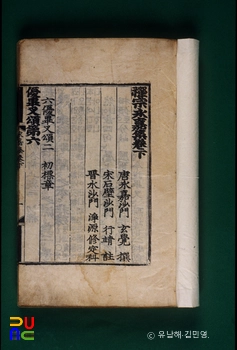 禪宗永嘉集卷下
唐永嘉沙門 玄覺 撰
宋石壁沙門 行靖 註
晉水沙門 淨源 修定科
優畢叉頌第六
六優畢叉頌二 初標章
優畢叉頌第六
PUBC
© 유남해.김민영.